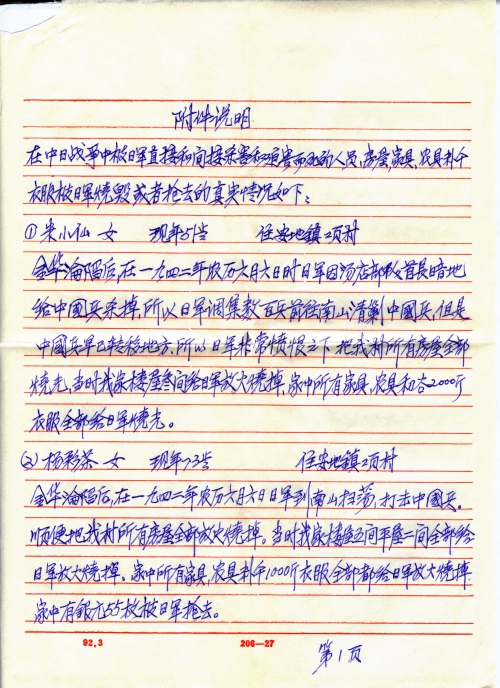 附件说明
在中日战争中被日军直接和间接杀害和迫害而死的人员,房屋,家具,农具利千
衣服被日军烧毁或者抢去的真实情况如下:
①朱小仙 女 现年51岁 住安地镇项村
金华沦陷后,在一九四二年农历六月六日时日军因汤店部队首長暗地
给中國兵杀掉,所以日军调集数百兵前往南山清剿中國兵,但是
中國兵早已转移地方,所以日军非常愤恨之下把我村所有房屋全部
烧光,当时我家楼屋叁间给日军放火烧掉,家中所有家具,农具和谷2000斤
衣服全部给日军烧光。
②杨彩茶 女 现年73岁 住安地镇项村
金华沦陷后,在一九四二年农历六月六日日军到南山扫荡,打击中國兵。
顺便把我村所有房屋全部放火烧掉。当时我家楼屋五间平屋二间全部给
日军放火烧掉。家中所有家具,农具利千1000斤衣服全部都给日军放火烧掉
家中有银元55枚被日军抢去。
92.3 206—27
第1页